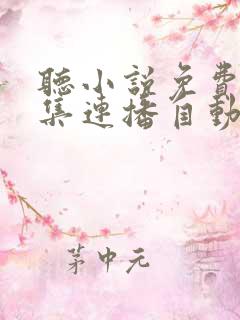 聽小説免費
集連播自動
茅中元